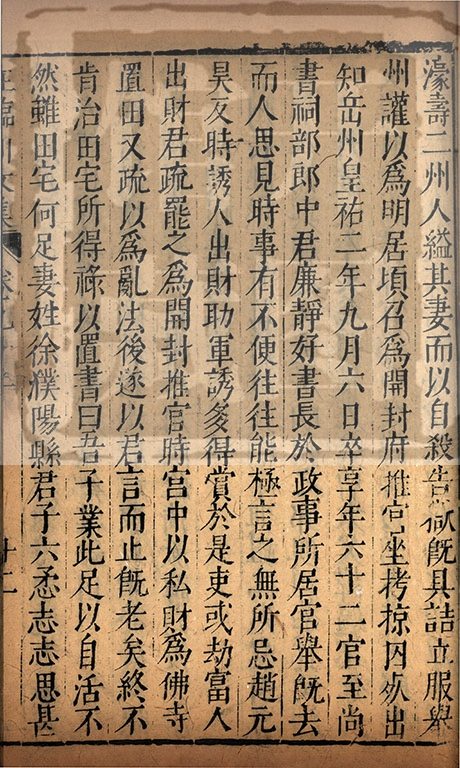 濠壽二州人縊其妻而以自殺告獄旣具詰立服舉
州讙以爲明居頃召爲開封府推官坐拷掠囚死出
知岳州皇祐二年九月六日卒享年六十二官至尚
書祠部郎中君廉靜好書長於政事所居官舉旣去
而人思見時事有不便往往能極言之無所忌趙元
昊反時誘人出財助軍誘多得賞於是吏或劫富人
出財君疏罷之爲開封推官時宮中以私財爲佛寺
置田又疏以爲亂法後遂以君言而止旣老矣終不
肯治田宅所得祿以置書曰吾子業此足以自活不
然雖田宅何足妻姓徐濮陽縣君子六悊志志思甚
王臨川文集 卷九十 十二